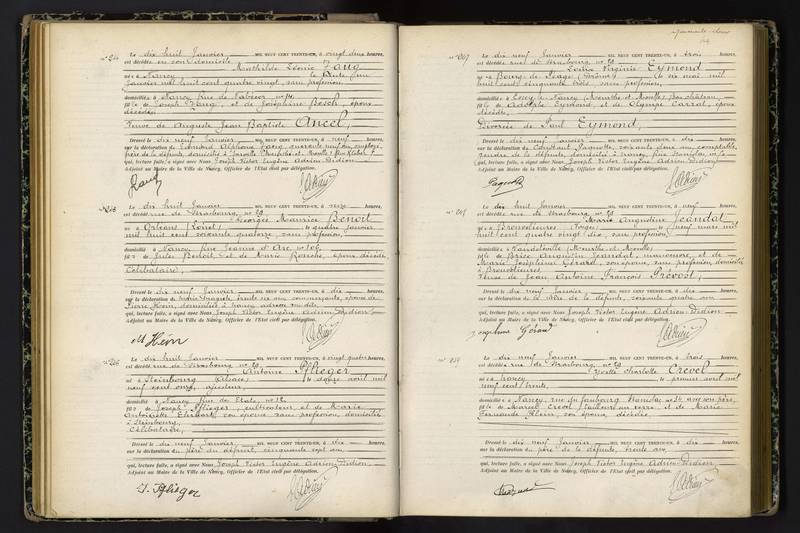 N° 204 Le dix huit Janvier, MIL NEUF CENT TRENTE-UN, à vingt deux heures,
est décédée en son domicile Mathilde Léonie Zang
née à Nancy, le trente un
Janvier mil huit cent quatre vingt, sans profession,
domiciliée à Nancy, Rue de N° 14,
fille de Joseph Zang, et de Joséphine Besch, époux
décédés,
Veuve de Auguste Jean Baptiste Ancel,
Dressé le dix neuf Janvier, à neuf heures,
sur la déclaration de Edmond Alphonse Zang quarante neuf ans, employé,
frère de la défunte, domicilié à
qui, lecture faite, a signé avec Nous Joseph Victor Eugène Adrien Didion
Adjoint au Maire de la Ville de Nancy, Officier de l'Etat civil par délégation.
Le dix huit Janvier, MIL NEUF CENT TRENTE-UN, à seize heures,
est décédé rue de Strasbourg, N° 29 Georges Maurice Benoit
né à Orléans (Loiret) le quatre janvier
mil huit cent soixante quatorze, sans profession,
domicilié à Nancy, Rue Jeanne d'Arc N° 106,
fils de Jules Benoit, et de Marie Ronche, époux décédés
Célibataire,
Dressé le dix neuf Janvier, à dix heures,
sur la déclaration de trente six ans, commerçante, épouse de
Pierre Héon, domiciliée à Nancy,
qui, lecture faite, a signé avec Nous Joseph Victor Eugène Adrien Didion
Adjoint au Maire de la Ville de Nancy, Officier de l'Etat civil par délégation.
M Héon
N° 206 Le dix huit Janvier, MIL NEUF CENT TRENTE-UN, à vingt quatre heures,
est décédé rue de Strasbourg N° 29 Antoine Pflieger
né à Steinbourg (Alsace) le douze avril mil
neuf cent onze, ajusteur,
domicilié à Nancy, Rue des N° 12
fils de Joseph Pflieger, entrepreneur, et de Marie
Antoinette Ehrhart, son épouse, sans profession, domiciliés
à Steinbourg,
Célibataire,
Dressé le dix neuf Janvier, à dix heures,
sur la déclaration du père du défunt, cinquante sept ans,
qui, lecture faite, a signé avec Nous Joseph Victor Eugène Adrien Didion
Adjoint au Maire de la Ville de Nancy, Officier de l'Etat civil par délégation.
J. Pflieger
N° 207 Le dix neuf Janvier MIL NEUF CENT TRENTE-UN, à trois heures,
est décédée rue de Strasbourg N° 29 Louise Virginie Eymond
née à Bourg de Péage (Drôme) le six mai mil
huit cent cinquante trois, sans profession,
domiciliée à Essey-lès-Nancy (Meurthe-et-Moselle)
fille de Adolphe Eymond, et de Olympe Carrat, époux
décédés,
Divorcée de Paul Eymond,
Dressé le dix neuf Janvier, à dix heures,
sur la déclaration de Constant soixante deux ans, comptable,
gendre de la défunte, domicilié à Nancy, Rue Stanislas,
qui, lecture faite, a signé avec Nous Joseph Victor Eugène Adrien Didion
Adjoint au Maire de la Ville de Nancy, Officier de l'Etat civil par délégation.
Le dix neuf Janvier MIL NEUF CENT TRENTE-UN, à neuf heures,
est décédée rue de Strasbourg, N° 29 Marie Augustine Jeandat
née à Brouvelieures (Vosges) le neuf mars mil
huit cent quatre vingt dix, sans profession,
domiciliée à (Meurthe-et-Moselle)
fille de Brice Augustin Jeandat, manoeuvre, et de
Marie Joséphine Gérard, son épouse, sans profession, domiciliés
à Brouvelieures,
Veuve de Jean Antoine François Prévost,
Dressé le dix neuf Janvier, à dix heures,
sur la déclaration de la mère de la défunte, soixante quatre ans
qui, lecture faite, a signé avec Nous Joseph Victor Eugène Adrien Didion
Adjoint au Maire de la Ville de Nancy, Officier de l'Etat civil par délégation.
Josephine Gérard
N° 209 Le dix neuf Janvier MIL NEUF CENT TRENTE-UN, à trois heures,
est décédée rue de Strasbourg, N° 29 Yvette Charlotte Crevel
née à Nancy, le premier avril mil
neuf cent trente,
domiciliée à Nancy, rue du faubourg Stanislas N° 34 avec son père,
fille de Marcel Crevel, tailleur sur verre, et de Marie
Fernande Klein, son épouse, décédée,
Dressé le dix neuf Janvier, à dix heures,
sur la déclaration du père de la défunte, trente ans,
qui, lecture faite, a signé avec Nous Joseph Victor Eugène Adrien Didion
Adjoint au Maire de la Ville de Nancy, Officier de l'Etat civil par délégation.